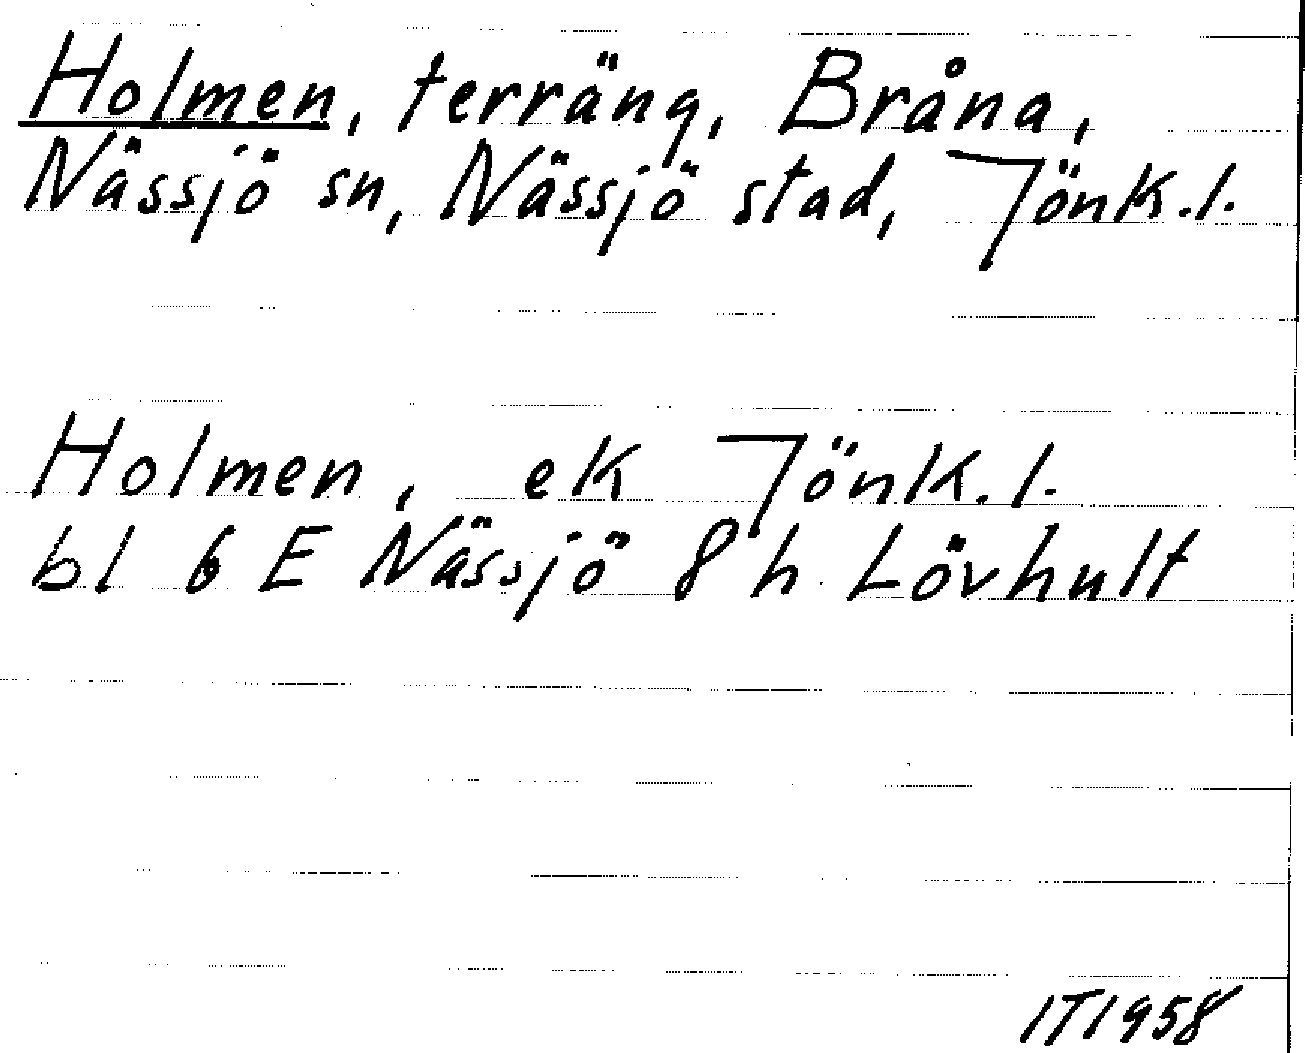 Holmen, terräng, Bråna,
Nässjö sn, Nässjö stad, Jönk.l.
Holmen, ek Jönk.l.
bl 6 E Nässjö 8 h Lövhult
IT1958